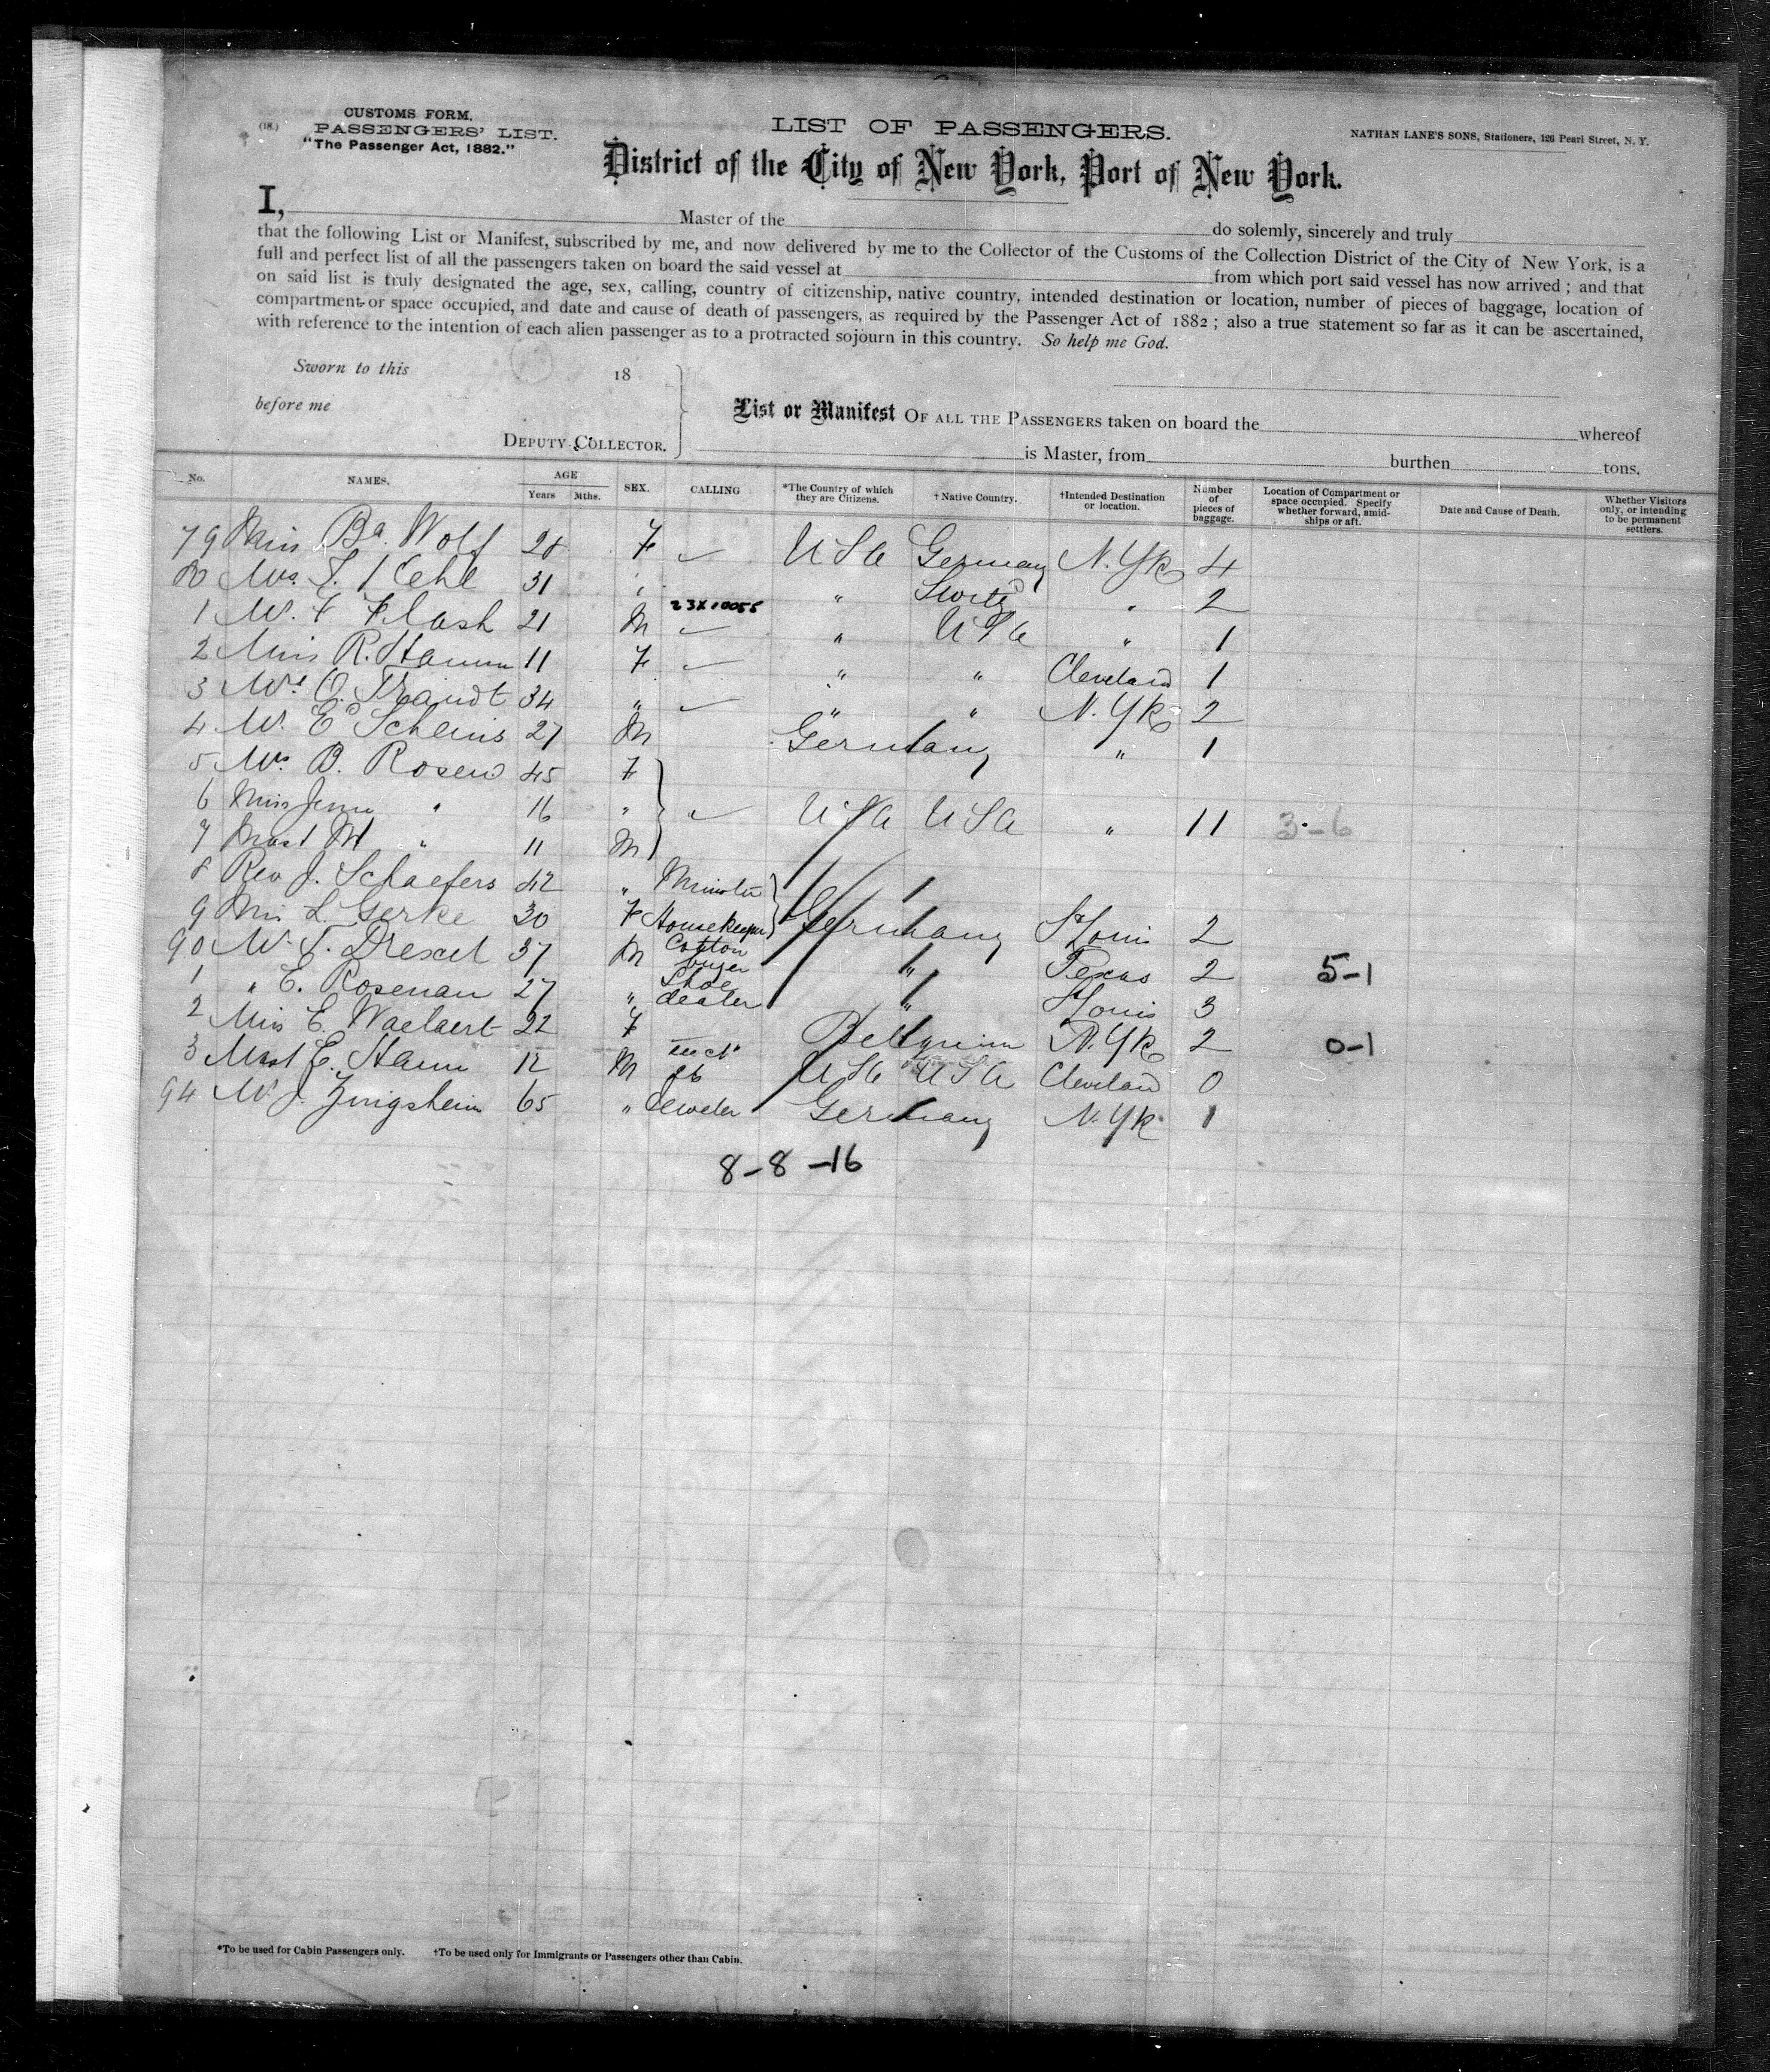 (18.)
CUSTOMS FORM.
PASSENGERS' LIST.
"The Passenger Act, 1882."
LIST OF PASSENGERS.
NATHAN LANE'S SONS, Stationers, 126 Pearl Street, N. Y.
District of the City of New York, Port of New York.
I, Master of the do solemly, sincerely and truly
that the following List or Manifest, subscribed by me, and now delivered by me to the Collector of the Customs of the Collection District of the City of New York, is a
full and perfect list of all the passengers taken on board the said vessel at from which port said vessel has now arrived ; and that
on said list is truly designated the age, sex, calling, country of citizenship, native country, intended destination or location, number of pieces of baggage, location of
compartment or space occupied, and date and cause of death of passengers, as required by the Passenger Act of 1882 ; also a true statement so far as it can be ascertained,
with reference to the intention of each alien passenger as to a protracted sojourn in this country. So help me God.
Sworn to this 18
before me
DEPUTY COLLECTOR.
List or Manifest OF ALL THE PASSENGERS taken on board the whereof
is Master, from burthen tons.
No. NAMES. AGE Years Mths. SEX. CALLING *The Country of which they are Citizens. †Native Country. †Intended Destination or location. Number of pieces of baggage. Location of Compartment or space occupied. Specify whether forward, amidships or aft. Date and Cause of Death. Whether Visitors only, or intending to be permanent settlers.
79 Miss Ba. Wolf 28 F USA Germany N.Yk 4
80 Mrs. 31 " " Switz " 2
23X10055
1 Mr. F Flash 21 M " USA " 1
2 Miss R. Hamm 11 F " " Cleveland 1
3 Mrs O. 34 " " " N.Yk 2
4 Mr. E Scheins 27 M Germany " 1
5 Mrs B. Rosen 45 F
6 Miss " 16 " USA USA " 11 3-6
7 Mast M " 11 M
8 Rev J. Schaefers 42 " Minister
9 Miss L. Gerke 30 F Housekeeper Germany St Louis 2
90 Mr. Drexel 37 M Cotton buyer " Texas 2 5-1
1 " E. Rosenau 27 " Shoe dealer " St Louis 3
2 Miss E. Waelaert 22 F Belgium N.Yk 2 0-1
3 Mast E. Hamm 12 M USA USA Cleveland 0
94 Mr J. Zingsheim 65 " Jeweler Germany N.Yk 1
8-8-16
*To be used for Cabin Passengers only. †To be used only for Immigrants or Passengers other than Cabin.